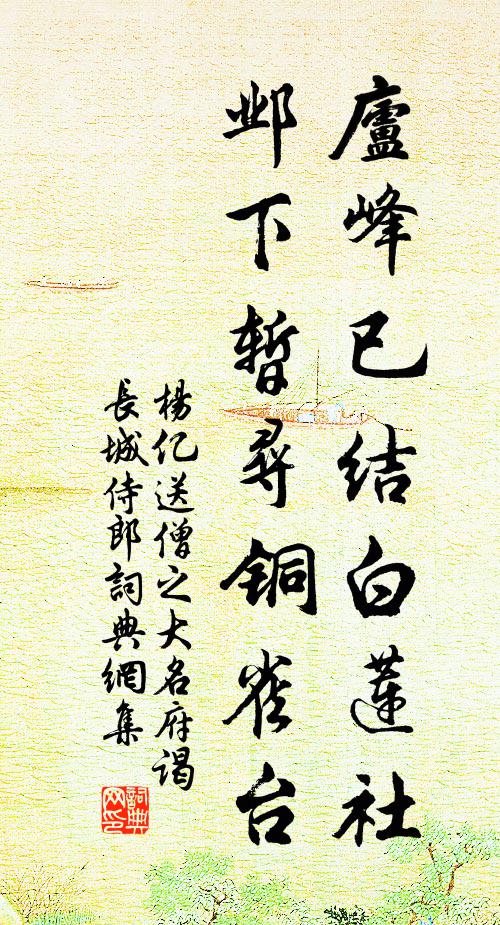 廬峰已結白蓮社
邺下暫尋銅雀台
楊亿送僧之大名府謁
長城侍郎詞典網集
詞典网印